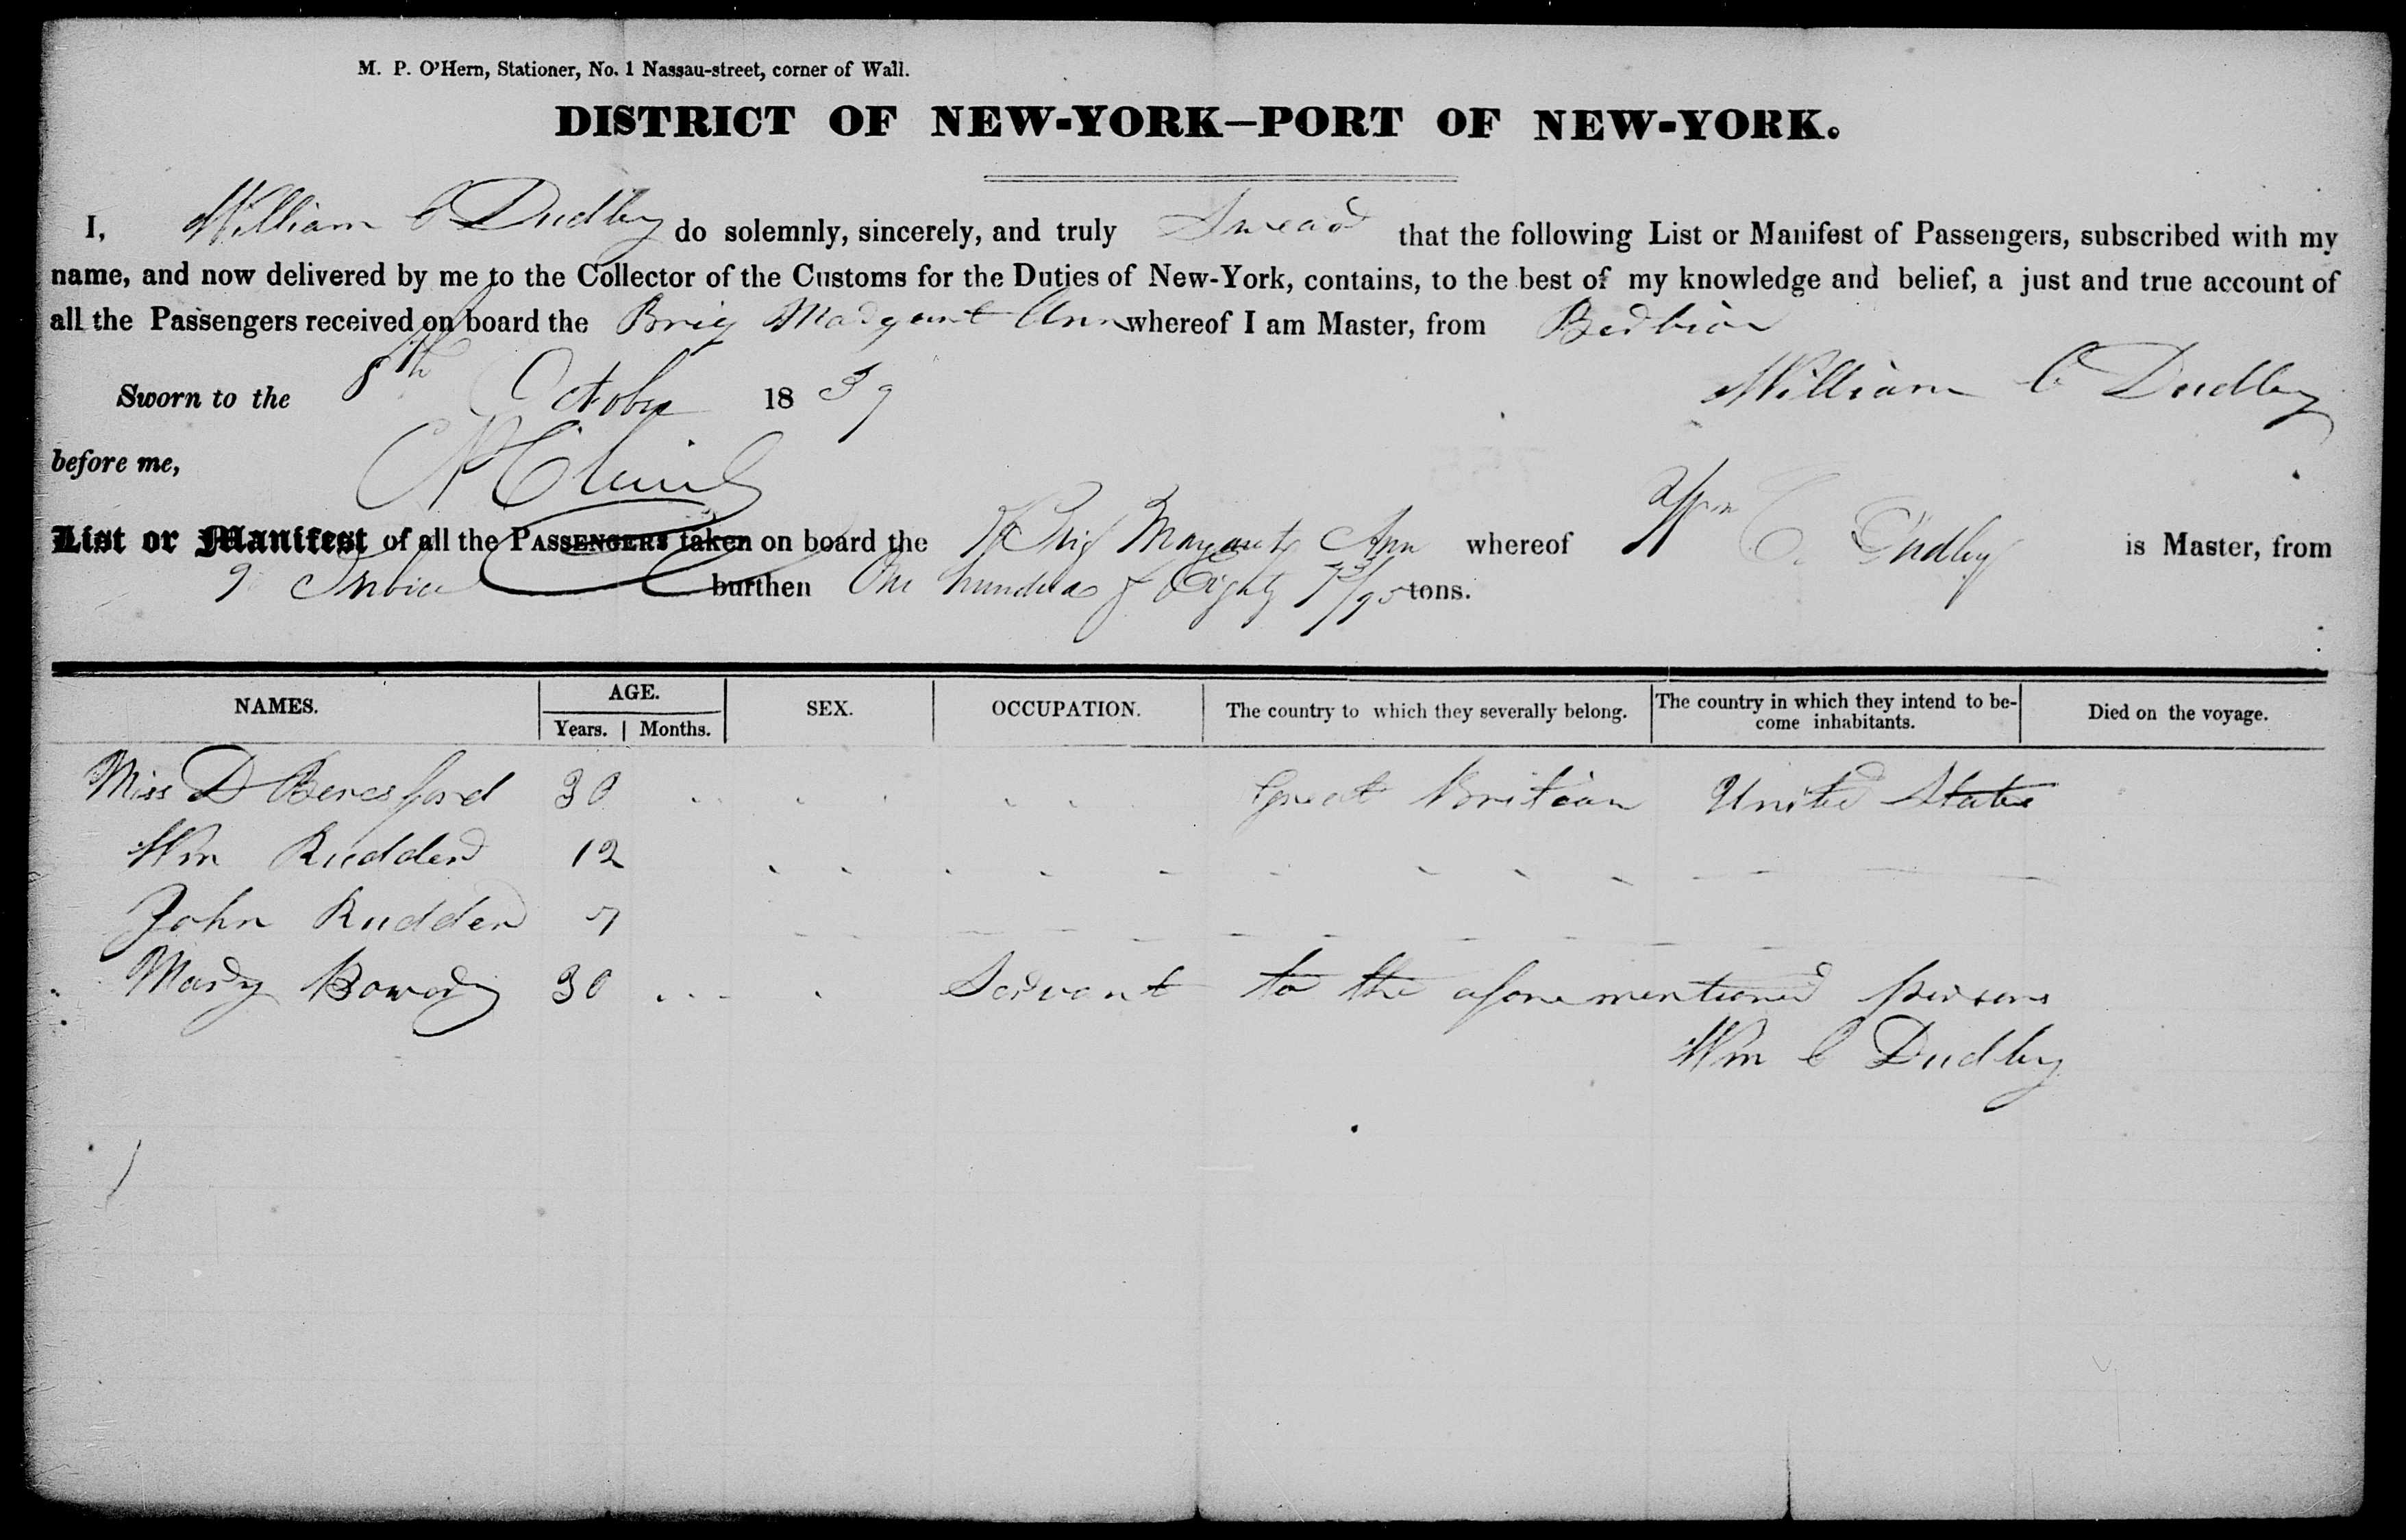 M. P. O'Hern, Stationer, No. 1 Nassau-street, corner of Wall.
DISTRICT OF NEW-YORK—PORT OF NEW-YORK.
I, William C Dudley do solemnly, sincerely, and truly Swear that the following List or Manifest of Passengers, subscribed with my
name, and now delivered by me to the Collector of the Customs for the Duties of New-York, contains, to the best of my knowledge and belief, a just and true account of
all the Passengers received on board the Brig Margaret Ann whereof I am Master, from
Sworn to the 8th October 1839 William C Dudley
before me,
List or Manifest of all the PASSENGERS taken on board the Brig Margaret Ann whereof Wm C. Dudley is Master, from
burthen One hundred & Eighty 73/95 tons.
NAMES. AGE. SEX. OCCUPATION. The country to which they severally belong. The country in which they intend to be-
come inhabitants. Died on the voyage.
Years. Months.
Miss D Beresford 30 Great Britian United States
Wm Rudder 12
John Rudder 7
Mary 30 Servant to the afore mentioned persons
Wm C Dudley